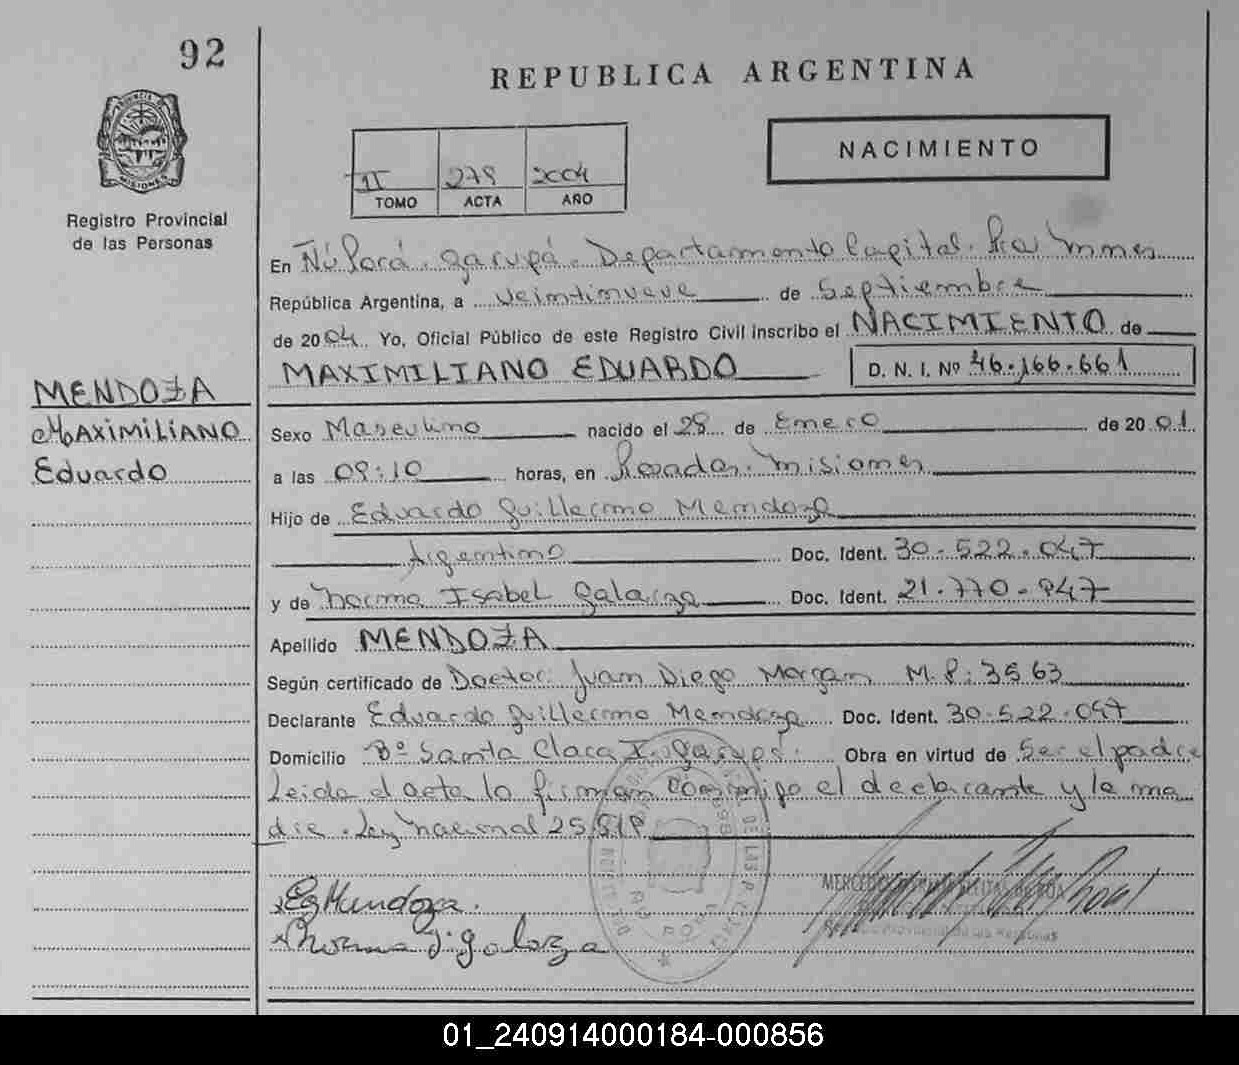 92
REPUBLICA ARGENTINA
NACIMIENTO
II 278 2004
TOMO ACTA AÑO
PROVINCIA DE
MISIONES
Registro Provincial
de las Personas
En Ñú Porá. Garupá. Departamento Capital. Misiones
República Argentina, a Veintinueve de Septiembre
de 2004 Yo, Oficial Público de este Registro Civil inscribo el NACIMIENTO de
MAXIMILIANO EDUARDO D. N. I. Nº 46.166.661
MENDOZA
MAXIMILIANO
Eduardo
Sexo Masculino nacido el 28 de Enero de 2001
a las 09:10 horas, en Posadas. Misiones
Hijo de Eduardo Guillermo Mendoza
Argentino Doc. Ident. 30.522.047
y de Norma Isabel Galarza Doc. Ident. 21.770.947
Apellido MENDOZA
Según certificado de Doctor: Juan Diego M.P: 3563
Declarante Eduardo Guillermo Mendoza Doc. Ident. 30.522.047
Domicilio Bº Santa Clara I. Garupá. Obra en virtud de Ser el padre
Leida el acta la firman conmigo el declarante y la ma
dre. Ley nacional
EgMendoza.
Norma I. galarza
Provincial de las Personas
01_240914000184-000856